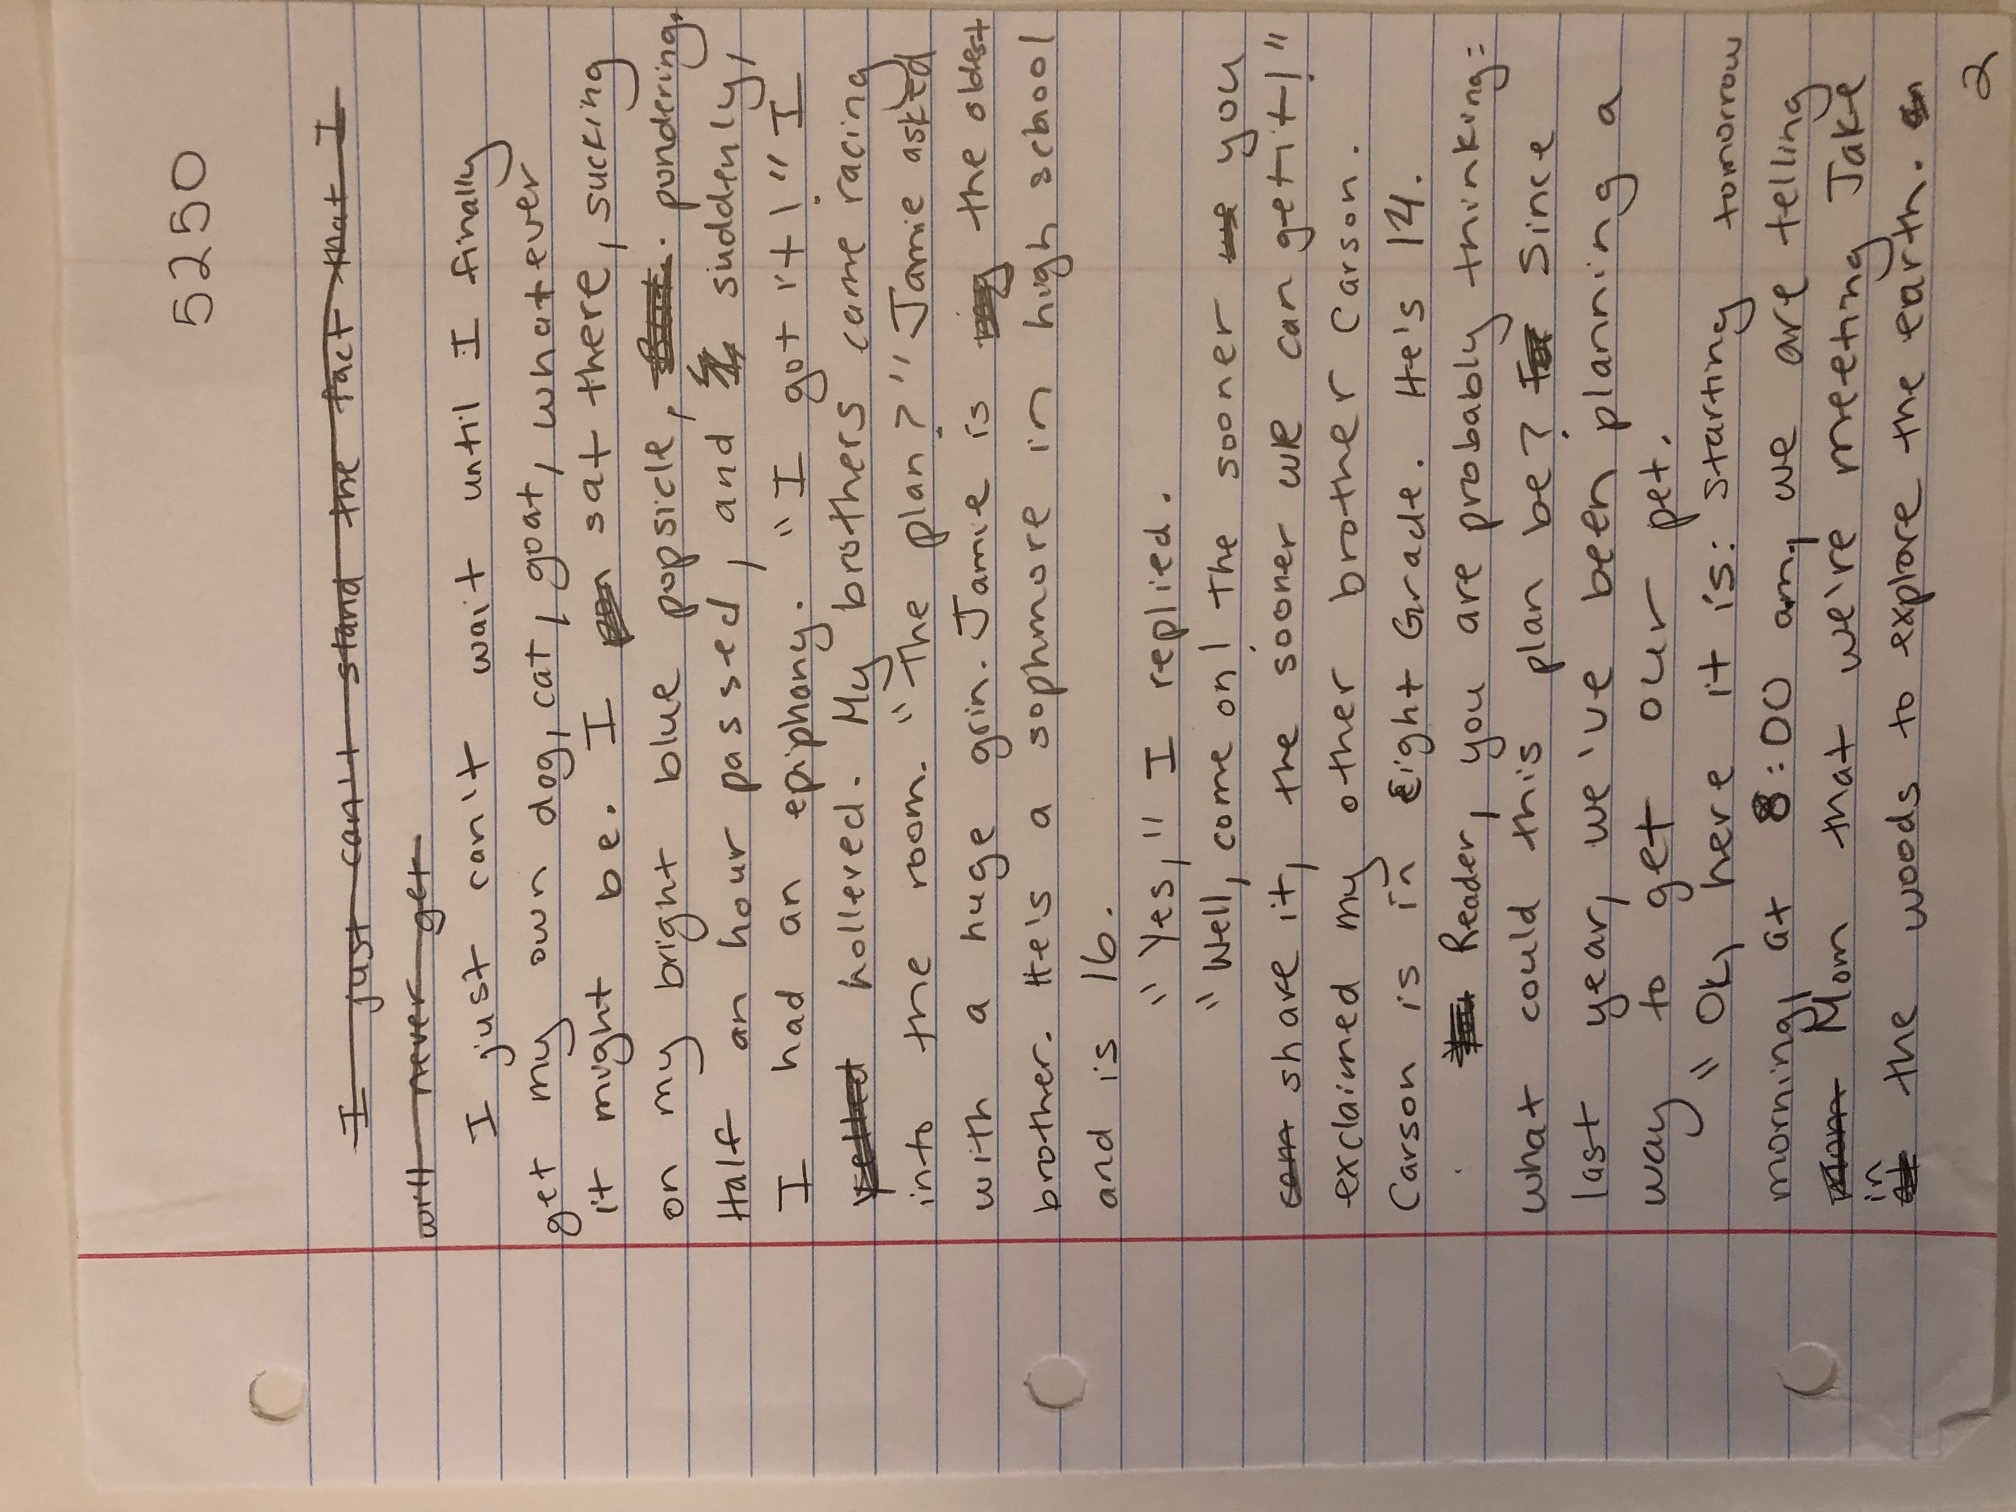 5250
I just can't stand the fact that I
will never get
I just can't wait until I finally
get my own dog, cat, goat, whatever
it might be. I sat there, sucking
on my bright blue popsicle, pondering.
Half an hour passed, and suddenly,
I had an epiphany. "I got it!" I
yelled hollered. My brothers came racing
into the room. "The plan?" Jamie asked
with a huge grin. Jamie is the oldest
brother. He's a sophmore in high school
and is 16.
"Yes," I replied.
"Well, come on! The sooner we you
can share it, the sooner we can get it!"
exclaimed my other brother Carson.
Carson is in Eight Grade. He's 14.
You Reader, you are probably thinking:
what could this plan be? For Since
last year, we've been planning a
way to get our pet.
"Ok, here it is: starting tomorrow
morning, at 8:00 am, we are telling
mom Mom that we're meeting Jake
in
at the woods to explore the earth.
2